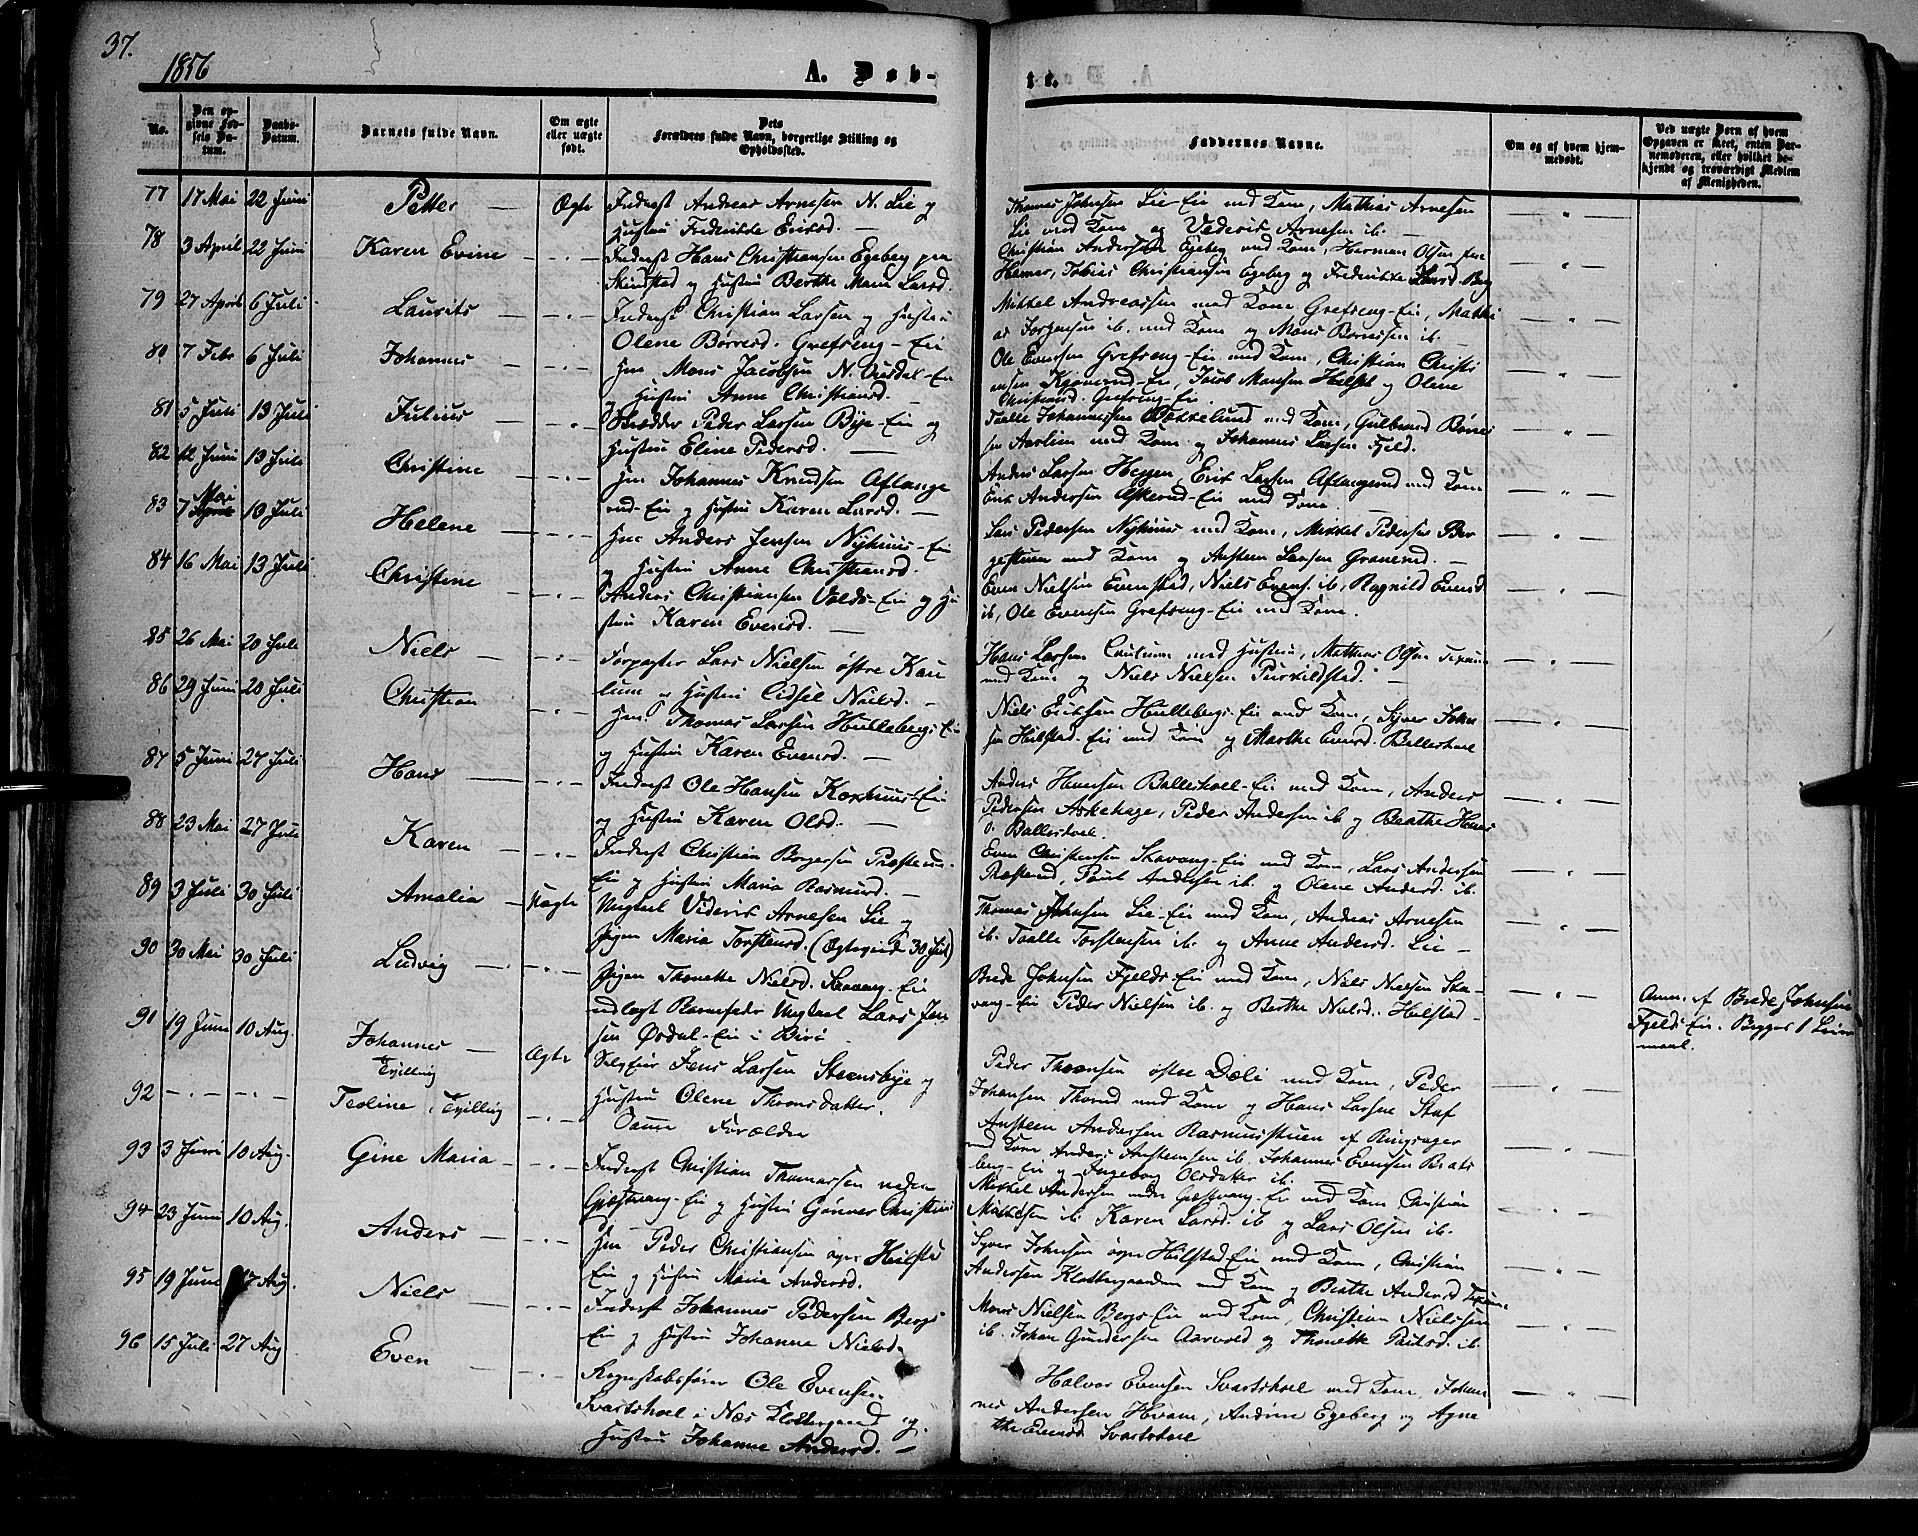 37.
1856
A. Døb-
te.
No.
Den opgivne Fødsels Datum.
Daabs-Datum.
Barnets fulde Navn.
Om ægte eller uægte født.
Dets Forældres fulde Navn, borgerlige Stilling og Opholdssted.
Faddernes Navne.
Om og af hvem hjemmedøbt.
Ved uægte Børn af hvem Opgaven er skeet, enten Barnemoderen, eller hvilket bekjendt og troværdigt Medlem af Menigheden.
77 17 Mai 22 Juni Petter — Ægte Inderst Andreas Arnesen N. Lie og
Hustru Fredrikke Eriksd. —
Thomas Johnsen Lie-Eie med Kone, Mathias Arnesen
Lie med Kone og Arnesen ib. —
78 3 April 22 Juni Karen Evine — " — Inderst Hans Christiansen Egeberg paa
Skindstad og Hustru Berthe Marie Larsd.
Christian Andersen Egeberg med Kone, Herman Olsen
Hamar, Tobias Christiansen Egeberg og Fredrikke Larsd. Berg
79 27 April 6 Juli Laurits — " — Inderst Christian Larsen og Hustru
Olene Børresd. Grefseng-Eie
Mikkel Andreassen med Kone Grefseng-Eie, Mathi
as Jorgensen ib. med Kone og Mons Børresen ib. —
80 7 Febr 6 Juli Johannes — " — Hm Mons Jacobsen N. -Eie
og Hustru Anne Christiansd. —
Ole Evensen Grefseng-Eie med Kone, Christian Christi
ansen -Eie, Jacob Monsen og Olene
Christiansd. Grefseng-Eie
81 5 Juli 13 Juli Julius — " — Skrædder Peder Larsen Bye-Eie og
Hustru Eline Pedersd. —
Taalle Johannesen Bakkelund med Kone, Gulbrand Børre
sen med Kone og Johannes Larsen Fjeld.
82 12 Juni 13 Juli Christine — " — Hm Johannes Knudsen Aflange
rud-Eie og Hustru Karen Larsd. —
Anders Larsen Heggen, Erik Larsen Aflangerud med Kone
Erik Andersen -Eie med Kone
83 7 Mai 13 Juli Helene — " — Hm Anders Jensen Nyhuus-Eie
og Hustru Anne Christiansd. —
Lars Pedersen Nyhuus med Kone, Mikkel Pedersen Ber
gestuen med Kone og Amsteen Larsen —
84 16 Mai 13 Juli Christine — " — Anders Christiansen Volds-Eie og Hu
stru Karen Evensd. —
Even Nielsen Evenstad, Niels Evens. ib, Ragnild Evensd
ib, Ole Evensen Grefseng-Eie med Kone.
85 26 Mai 20 Juli Niels — " — Forpagter Lars Nielsen østre Kau
lum og Hustru Cidsel Nielsd. —
Hans Larsen med Hustru, Mathias Olsen
med Kone og Niels Nielsen —
86 29 Juni 20 Juli Christian — " — Hm. Thomas Larsen Hulleberg-Eie
og Hustru Karen Evensd. —
Niels Eriksen Hulleberg-Eie med Kone, Syver John
sen Hilstad-Eie med Kone og Marthe Evensd. Balleshoel
87 5 Juni 27 Juli Hans — " — Inderst Ole Hansen -Eie
og Hustru Karen Olsd. —
Anders Hansen Balleshoel-Eie med Kone, Anders
Pedersen Askehage, Peder Andersen ib og Beathe Hans
d. Balleshoel.
88 23 Mai 27 Juli Karen — " — Inderst Christian Borgersen Præsterud-
Eie og Hustru Maria Rasmusd. —
Even Christensen Stavang-Eie med Kone, Lars Andersen
Præsterud, Paul Andersen ib. og Olene Andersd. ib.
89 3 Juli 30 Juli Amalia — Uægte Ungkarl Arnesen Lie og
Pigen Maria Torstensd. (Ægteviede 30 Juli)
Thomas Johnsen Lie-Eie med Kone, Andreas Arnesen
ib. Taalle Torstensen ib. og Anne Andersd. Lie —
90 30 Mai 30 Juli Ludvig — " — Pigen Thonette Nielsd. Stavang-Eie
udlagt Barnefader Ungkarl Lars Jen
sen Ørdal-Eie i Biri
Brede Johnsen Fjelds-Eie med Kone, Niels Nielsen Sta
vang-Eie Peder Nielsen ib. og Berthe Nielsd. Hilstad —
Anm. af Brede Johnsen
Fjelds Eie. Begges 1 Leier
maal.
91 19 Juni 10 Aug. Johannes — Tvilling Ægte Selveier Jens Larsen Steensbye og
Hustru Olene Thronsdatter.
Peder Thronsen østre Dæli med Kone, Peder
Johansen Thorud med Kone og Hans Larsen Staf
92 — " — — " — Teoline, Tvilling — " — Samme Forældre
Amsteen Andersen Rasmusstuen af Ringsager
med Kone Anders Amsteensen ib. Johannes Evensen Brats
berg-Eie og Ingeborg Olsdatter ib. —
93 3 Juni 10 Aug. Gine Maria — " — Inderst Christian Thomassen nedre
Gjæstvang-Eie og Hustru Gønner Christiansd
Mikkel Andersen nedre Gjæstvang-Eie med Kone Christian
Mathesen ib. Karen Larsd. ib og Lars Olsen ib.
94 23 Juni 10 Aug. Anders — " — Hm Peder Christiansen øvre Hilstad
Eie og Hustru Maria Andersd.
Syver Johnsen øvre Hilstad-Eie med Kone, Christian
Andersen Klostergaarden med Kone og Beathe Andersd
95 19 Juni 17 Aug. Niels — " — Inderst Johannes Pedersen Bergs
Eie og Hustru Johanne Nielsd.
Mons Nielsen Bergs-Eie med Kone, Christian Nielssen
ib. Johan Gundersen Aarvold og Thonette Paulsd. ib.
96 15 Juli 27 Aug Even — " — Regnskabsfører Ole Evensen
Svartshoel i Næs Klostergaard og
Hustru Johanne Andersd. —
Halvor Evensen Svartshoel med Kone, Johan
nes Andersen Hvam, Andrine Egeberg og Agne
the Evensd Svartshoel